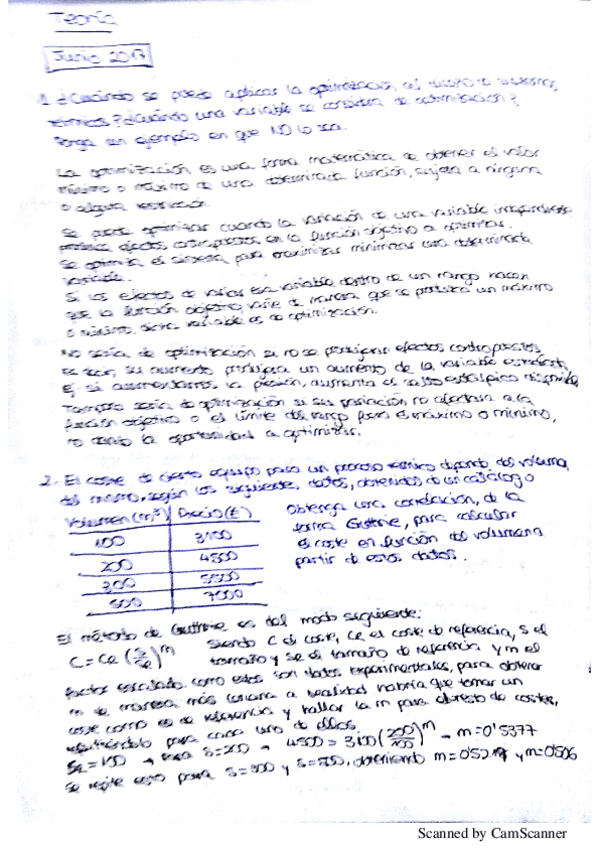 Teoría
Junio 2017
1. ¿Cuándo se puede aplicar la optimización al diseño de sistemas
térmicos? ¿Cuándo una variable se considera de optimización?
Ponga un ejemplo en que NO lo sea.
La optimización es una forma matemática de obtener el valor
mínimo o máximo de una determinada función, sujeta a ninguna
o alguna restricción.
Se puede optimizar cuando la variación de una variable independiente
produce efectos contrapuestos en la función objetivo a optimizar.
Se optimiza el sistema para maximizar minimizar una determinada
variable.
Si los efectos de variar esa variable dentro de un rango hacen
que la función objetivo varíe de manera que se produzca un máximo
o mínimo, dicha variable es de optimización.
No sería de optimización si no se produjeran efectos contrapuestos,
es decir, su aumento produjera un aumento de la variable
si aumentamos la presión, aumenta el salto entálpico
Tampoco sería de optimización si su variación no afectara a la
función objetivo o el límite del rango fuera el máximo o mínimo,
no dando la oportunidad a optimizar.
2- El coste de cierto equipo para un proceso térmico depende del volumen
del mismo, según los siguientes datos, obtenidos de un catálogo
Volumen (m³) Precio (€)
100 3100
200 4500
300 5500
500 7000
Obtenga una correlación, de la
forma Guthrie, para calcular
el coste en función del volumen a
partir de estos datos.
El método de Guthrie es del modo siguiente:
siendo C el coste, CR el coste de referencia, S el
C = CR (S/SR)^m tamaño y SR el tamaño de referencia y m el
factor escalado. Como estos son datos experimentales, para obtener
m de manera más cercana a realidad habría que tomar un
coste como es de referencia y hallar la m para el resto de costes,
repitiéndolo para cada uno de ellos.
SR = 100 → para S=200 → 4500 = 3100 (200/100)^m → m=0'5377
Se repite esto para S=300 y S=500, obteniendo m=0'5219 y m=0'506
Scanned by CamScanner